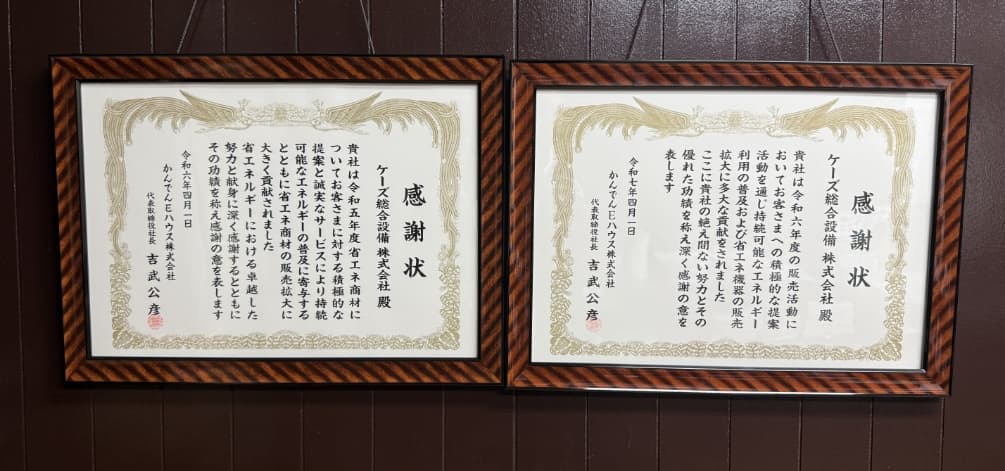 感謝状
ケーズ総合設備 株式会社 殿
貴社は令和五年度省エネ商材に
ついてお客さまに対する積極的な
提案と誠実なサービスにより持続
可能なエネルギーの普及に寄与する
とともに省エネ商材の販売拡大に
大きく貢献されました
省エネルギーにおける卓越した
努力と献身に深く感謝するとともに
その功績を称え感謝の意を表します
令和六年四月一日
かんでんEハウス株式会社
代表取締役社長 吉武公彦
感謝状
ケーズ総合設備 株式会社 殿
貴社は令和六年度の販売活動に
おいてお客さまへの積極的な提案
活動を通じ持続可能なエネルギー
利用の普及および省エネ機器の販売
拡大に多大な貢献をされました
ここに貴社の絶え間ない努力とその
優れた功績を称え深く感謝の意を
表します
令和七年四月一日
かんでんEハウス株式会社
代表取締役社長 吉武公彦